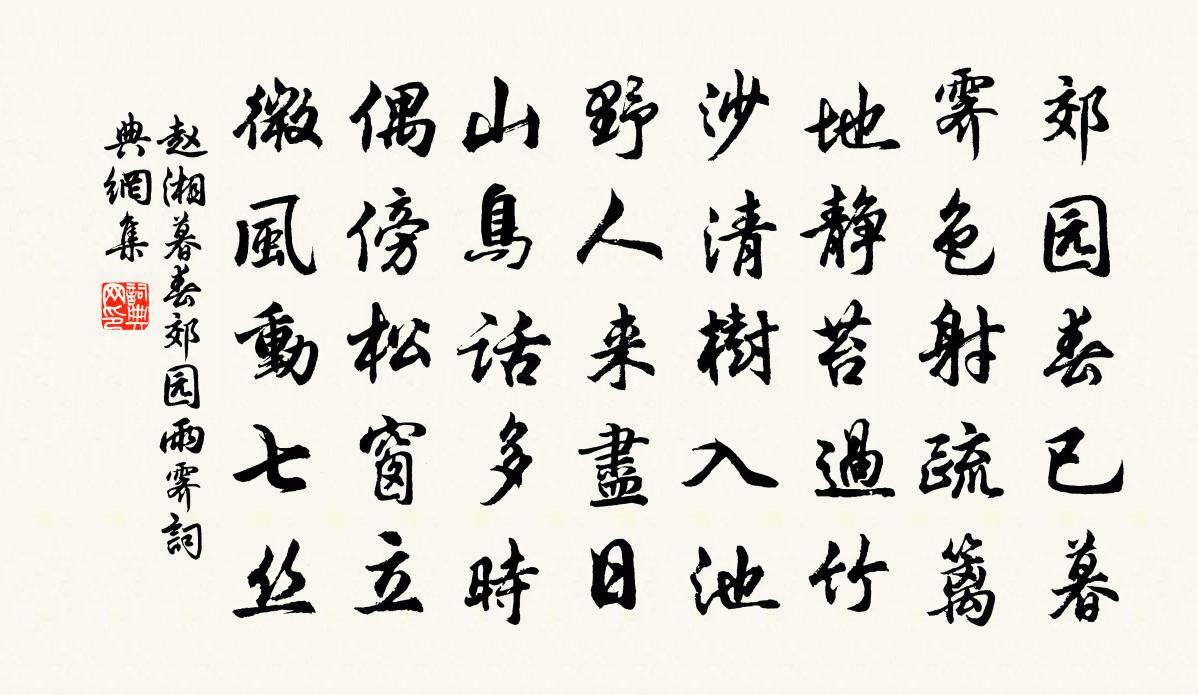 郊园春已暮
霽色射疏籬
地静苔過竹
沙清樹入池
野人来盡日
山鳥話多時
偶傍松窗立
微風動七丝
赵湘暮春郊园雨霽詞
典網集
詞典
网印